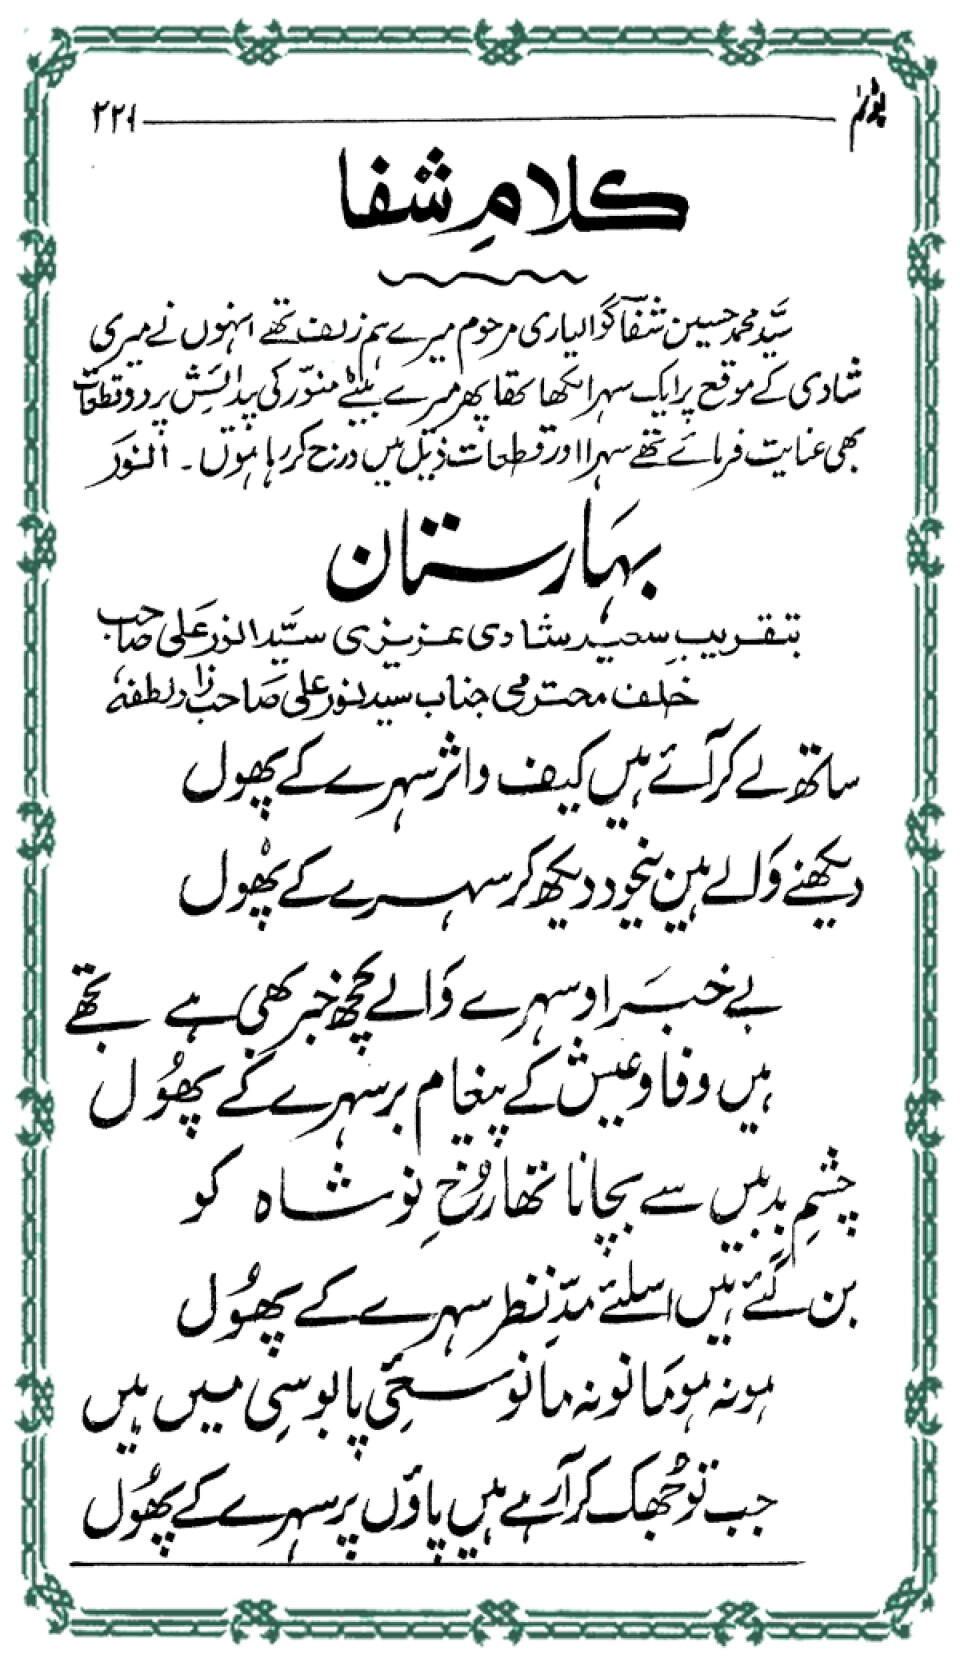 ۲۲۱
کلامِ شفا
سیّد محمد حسین شفاؔ گوالیاری مرحوم میرے ہم زلف تھے انہوں نے میری
شادی کے موقع پر ایک سہرا لکھا تھا پھر میرے بیٹے منوّر کی پیدائش پر دو قطعات
بھی عنایت فرمائے تھے سہرا اور قطعات ذیل میں درج کر رہا ہوں۔ انور
بہارستان
بتقریبِ سعید شادی عزیزی سیّد انور علی صاحب
خلف محترمی جناب سید نور علی صاحب زاد لطفہٗ
ساتھ لے کر آئے ہیں کیف و اثر سہرے کے پھول
دیکھنے والے ہیں بیخود دیکھ کر سہرے کے پھول
بے خبر او سہرے والے کچھ خبر بھی ہے تجھے
ہیں وفا و عیش کے پیغام بر سہرے کے پھول
چشمِ بدبیں سے بچانا تھا رخِ نوشاہ کو
بن گئے ہیں اسلئے مدِّ نظر سہرے کے پھول
ہو نہ ہو مانو نہ مانو سعئِ پابوسی میں ہیں
جب تو جُھک کر آ رہے ہیں پاؤں پر سہرے کے پھول